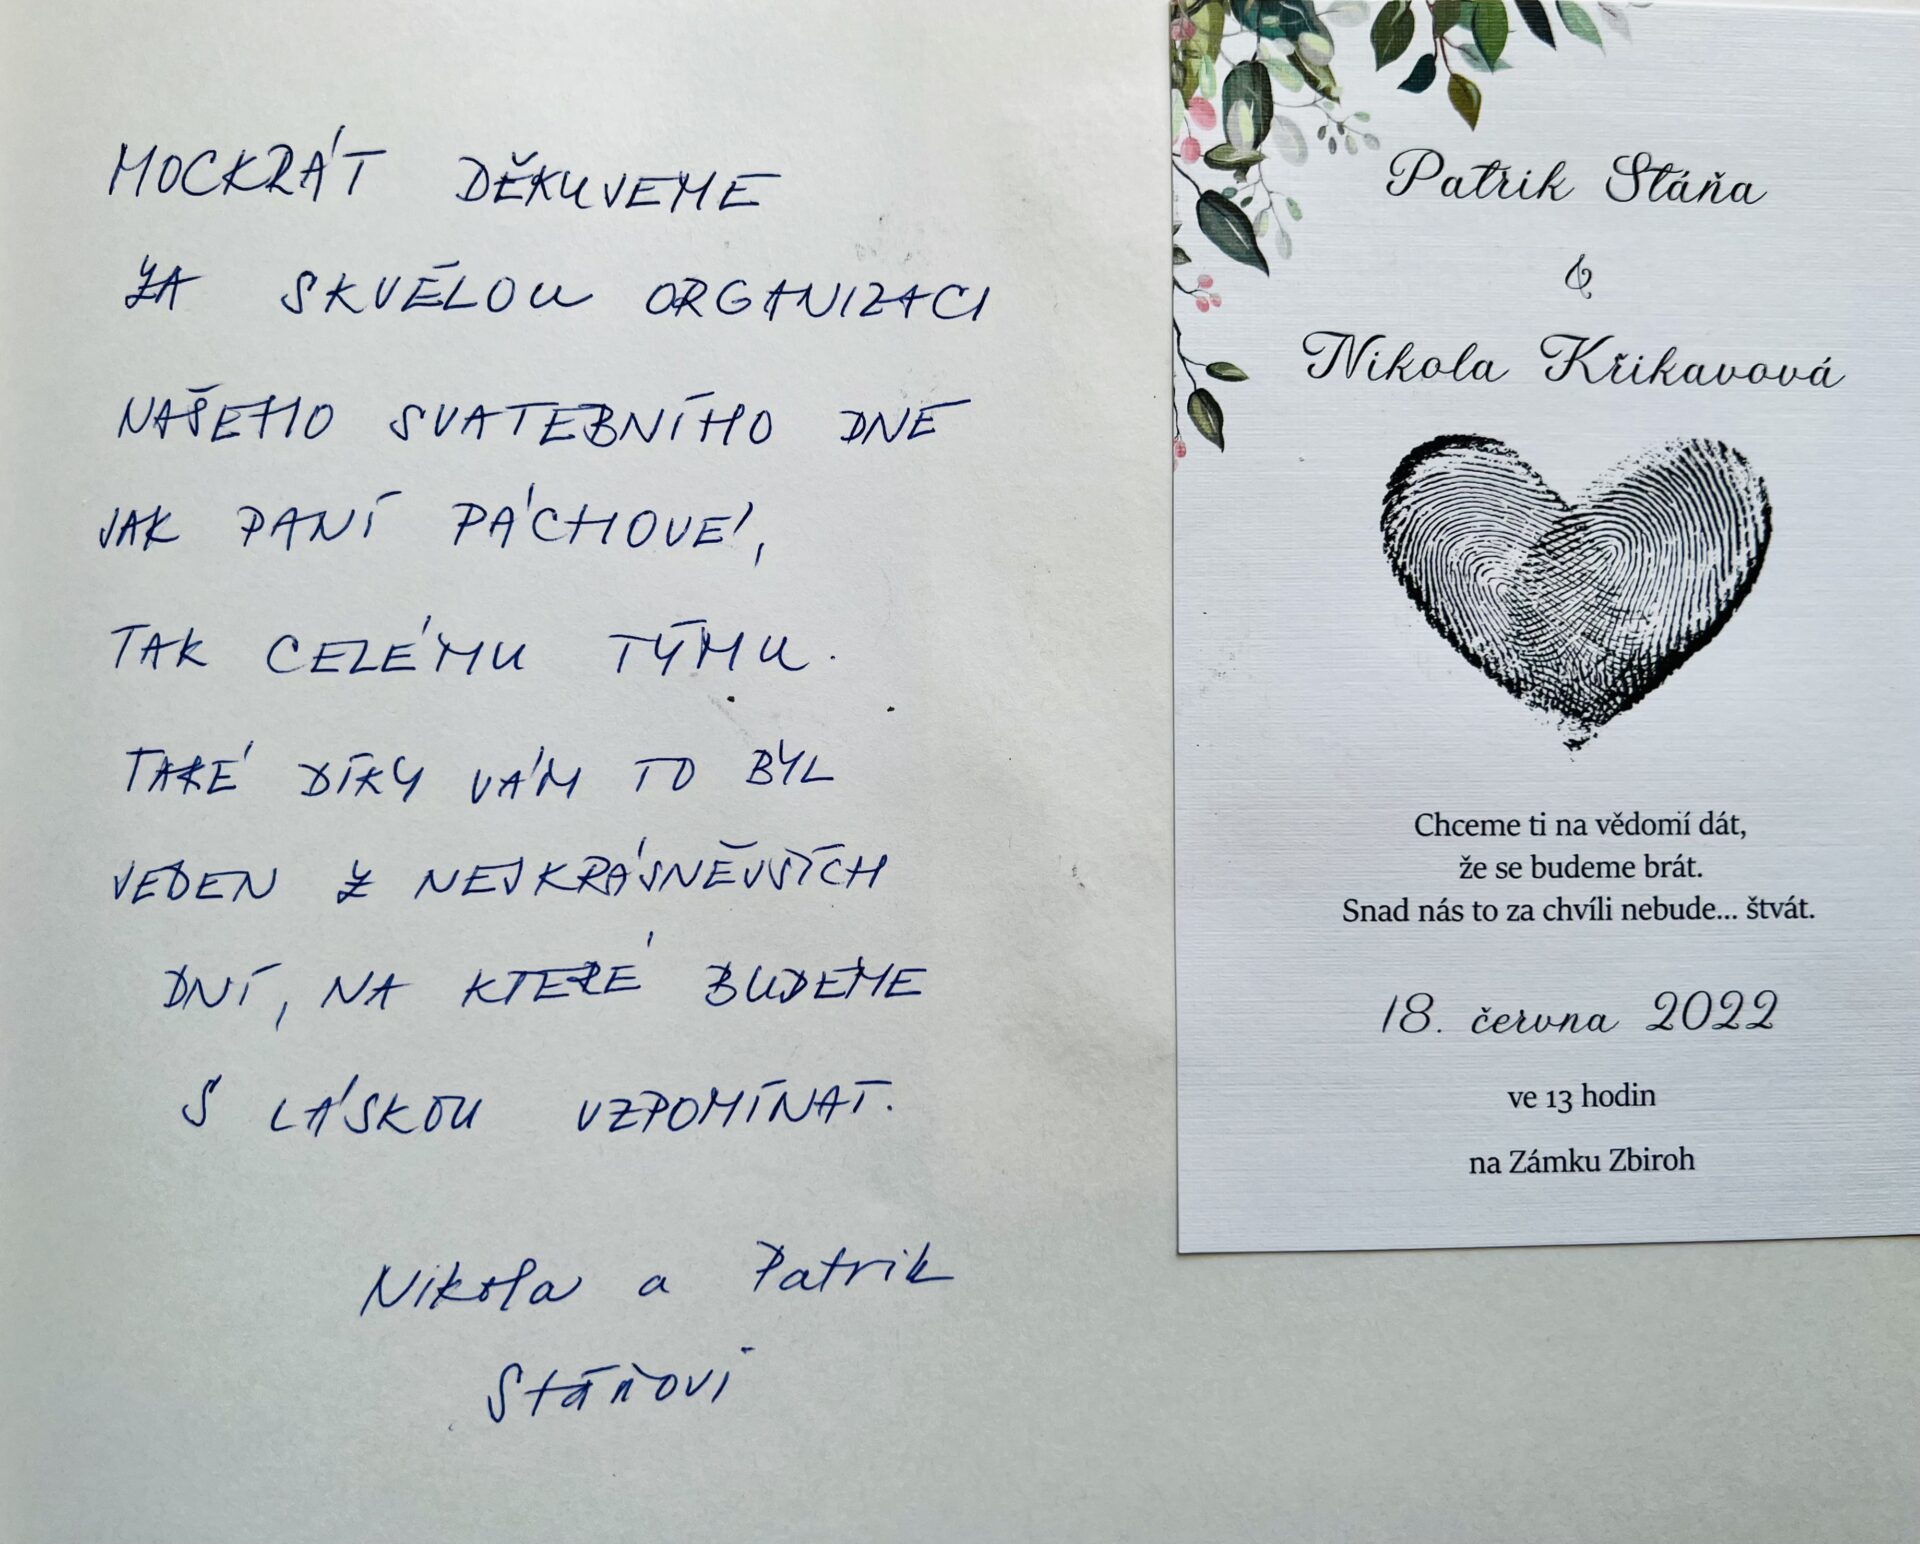 MOCKRÁT DĚKUJEME
ZA SKVĚLOU ORGANIZACI
NAŠEHO SVATEBNÍHO DNE
JAK PANÍ PÁCHOVÉ,
TAK CELÉMU TÝMU.
TAKÉ DÍKY VÁM TO BYL
JEDEN Z NEJKRÁSNĚJŠÍCH
DNÍ, NA KTERÉ BUDEME
S LÁSKOU VZPOMÍNAT.
Nikola a Patrik
Stáňovi
Patrik Stáňa
&
Nikola Křikavová
Chceme ti na vědomí dát,
že se budeme brát.
Snad nás to za chvíli nebude... štvát.
18. června 2022
ve 13 hodin
na Zámku Zbiroh